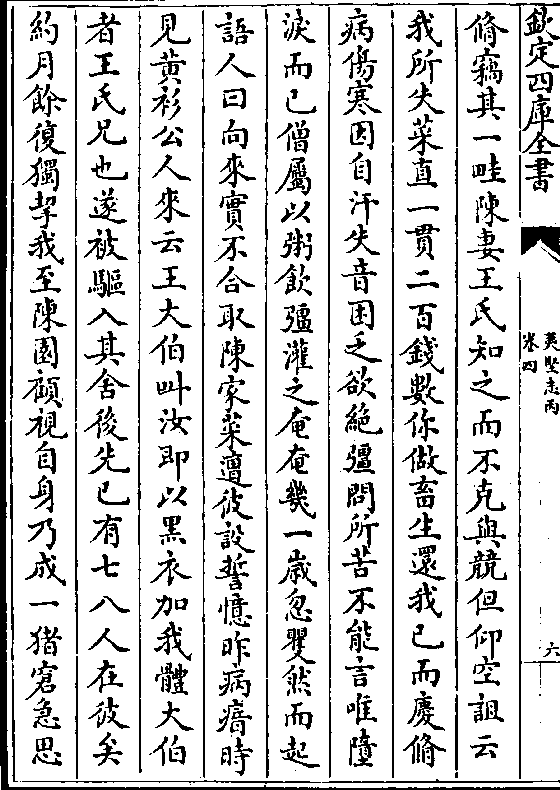 欽定四庫全書
夷堅志丙
卷四
六
脩竊其一畦陳妻王氏知之而不克與競但仰空詛云
我所失菜直一貫二百錢數你做畜生還我已而慶脩
病傷寒因自汗失音困乏欲絶彊問所苦不能言唯墮
淚而已僧屬以粥飲彊灌之奄奄幾一歲忽矍然而起
語人曰向來實不合取陳家菜遭彼設誓憶昨病瘖時
見黄衫公人來云王大伯叫汝即以黒衣加我體大伯
者王氏兄也遂被驅入其舍後先已有七八人在彼矣
約月餘復獨挈我至陳園顧視自身乃成一猪窘急思